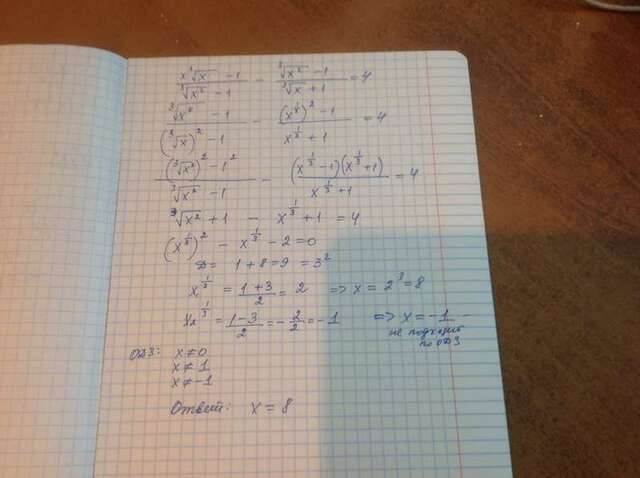 (x∛x - 1)/(∛x² - 1) - (∛x² - 1)/(∛x + 1) = 4
(∛x⁴ - 1)/((∛x)² - 1) - ((x^(1/3))² - 1)/(x^(1/3) + 1) = 4
((∛x²)² - 1²)/(∛x² - 1) - ((x^(1/3) - 1)(x^(1/3) + 1))/(x^(1/3) + 1) = 4
∛x² + 1 - x^(1/3) + 1 = 4
(x^(1/3))² - x^(1/3) - 2 = 0
D = 1 + 8 = 9 = 3²
x₁^(1/3) = (1+3)/2 = 2 => x = 2³ = 8
x₂^(1/3) = (1-3)/2 = -2/2 = -1 => x = -1 -
не подходит
по ОДЗ
ОДЗ: x ≠ 0
x ≠ 1
x ≠ -1
Ответ: x = 8